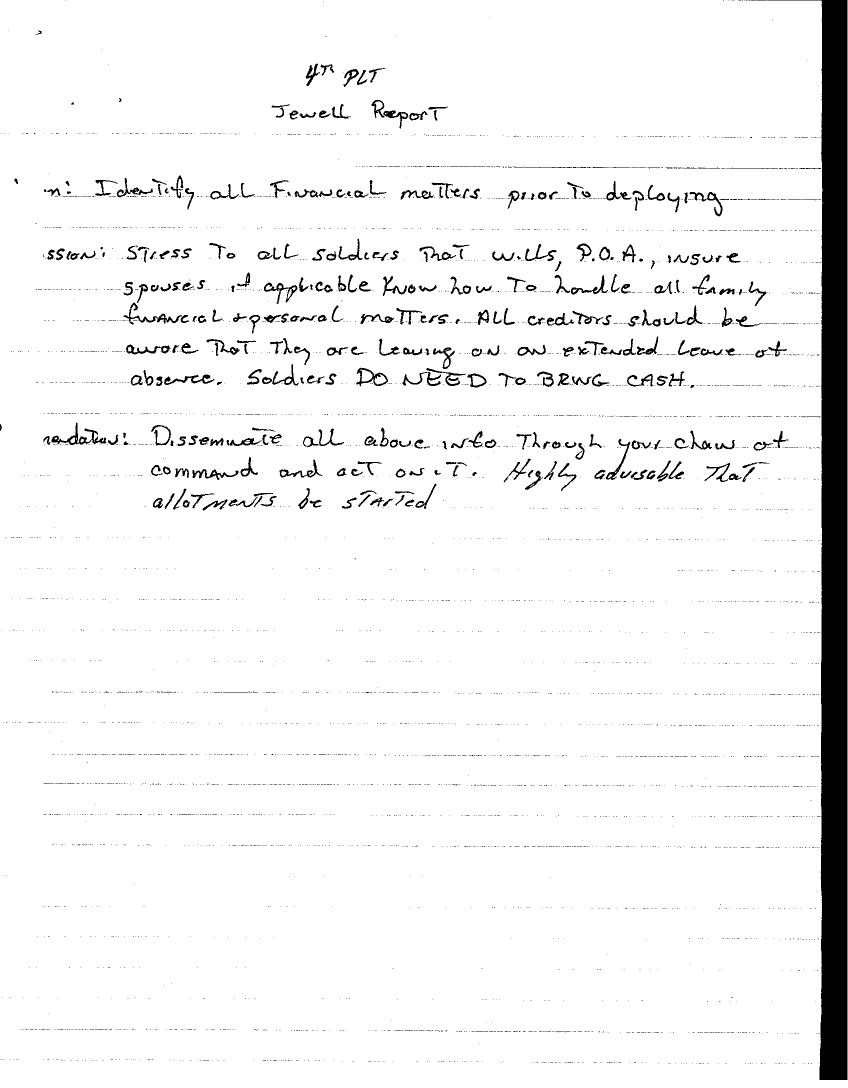 4TH PLT
Jewell Report
n: Identify all Financial matters prior To deploying
ssion: Stress To all soldiers That wills, P.O.A., insure
spouses if applicable Know how To handle all family
financial + personal matters. All creditors should be
aware That They are Leaving on an extended Leave of
absence. Soldiers DO NEED TO BRING CASH.
ndation: Disseminate all above info Through your chain of
command and act on iT. Highly advisable That
allotments be started